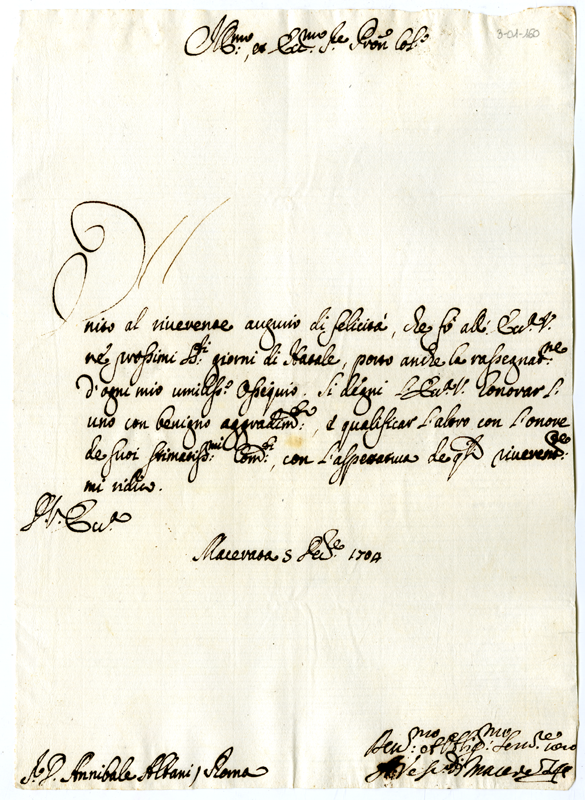 Ill.mo, et Ecc.mo Sre Pron Col.o
3-01-160
Unito al riverente augurio di felicità, che fò all' Ecc.a V.
ne' prossimi S.ti giorni di Natale, porto anche la rassegnat.ne
d'ogni mio umiliss.o ossequio. Si degni L'Ecc.a V. honorar l'
uno con benigno aggradim.to, e qualificar l'altro con l'onore
de suoi stimatiss.mi Com.di, con l'aspettativa de q.li riverem.te
mi ridico.
D. V. Ecc.a
Macerata 5 Xbre 1704
S.r D. Annibale Albani / Roma
Dev.mo et Obl.mo Serv.re vero
Macerata